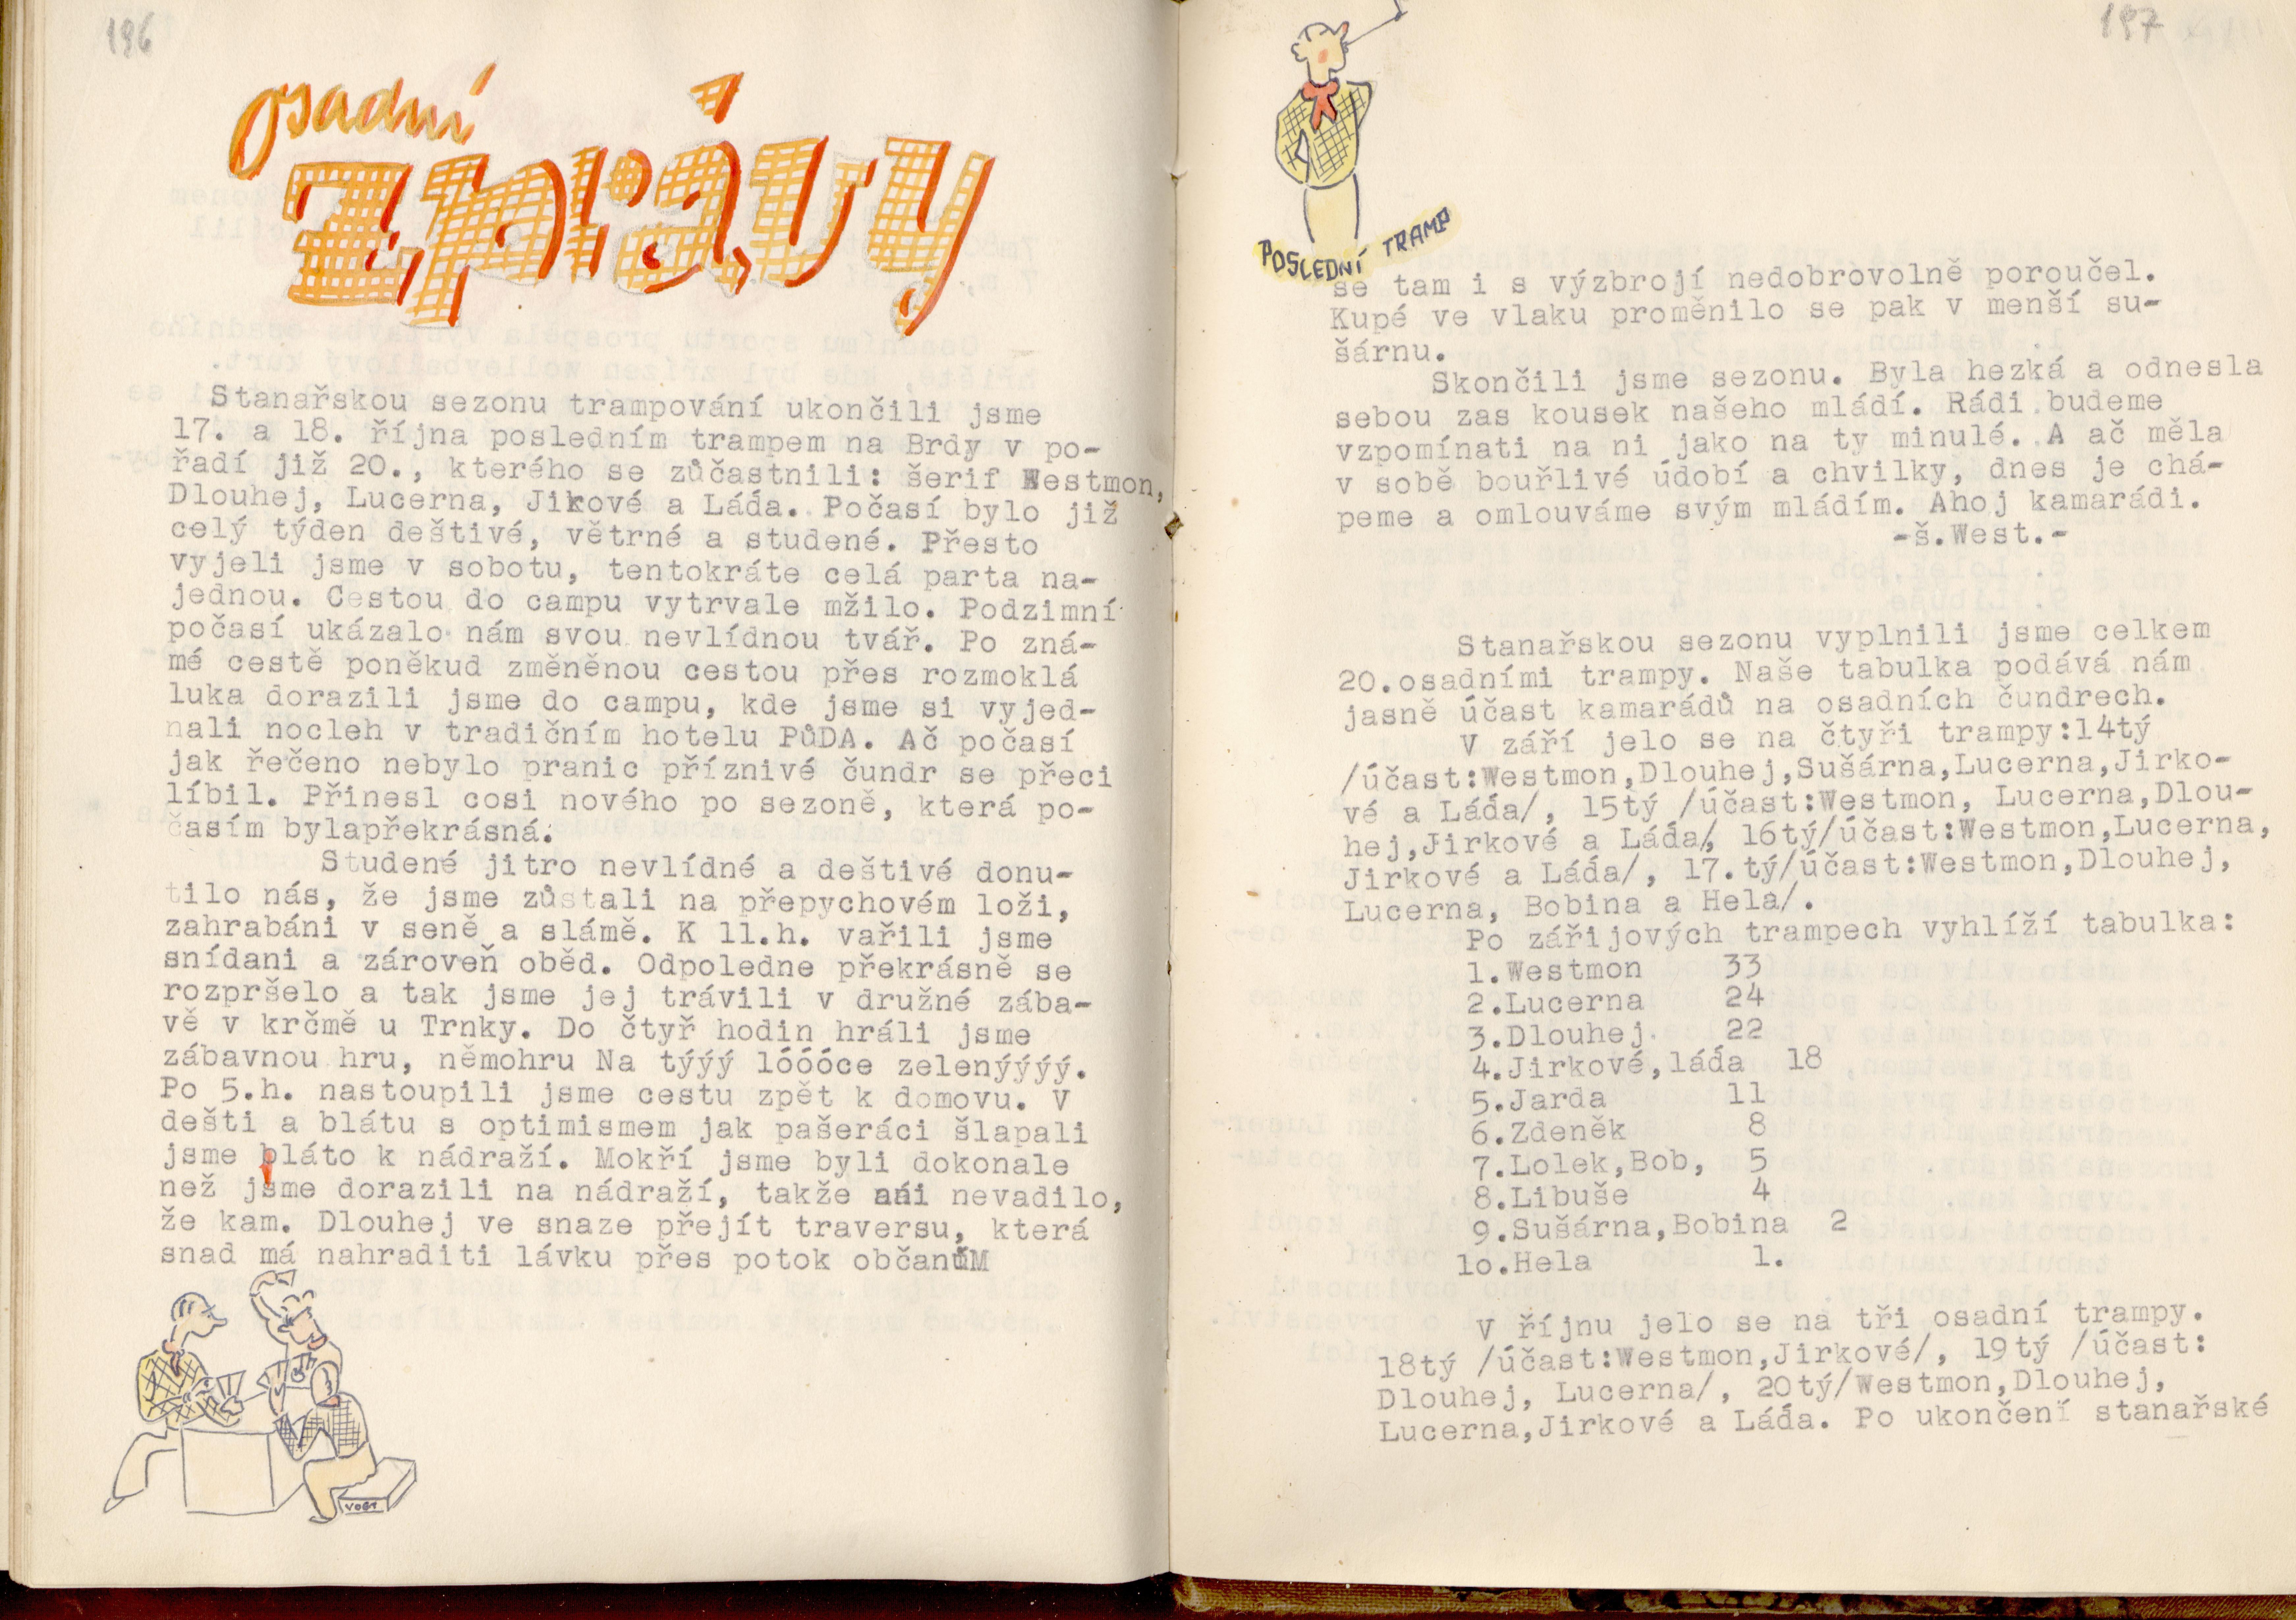 196
osadní
zprávy
Stanařskou sezonu trampování ukončili jsme
17. a 18. října posledním trampem na Brdy v po-
řadí již 20., kterého se zůčastnili: šerif Westmon,
Dlouhej, Lucerna, Jirkové a Láďa. Počasí bylo již
celý týden deštivé, větrné a studené. Přesto
vyjeli jsme v sobotu, tentokráte celá parta na-
jednou. Cestou do campu vytrvale mžilo. Podzimní
počasí ukázalo nám svou nevlídnou tvář. Po zná-
mé cestě poněkud změněnou cestou přes rozmoklá
luka dorazili jsme do campu, kde jsme si vyjed-
nali nocleh v tradičním hotelu PůDA. Ač počasí
jak řečeno nebylo pranic příznivé čundr se přeci
líbil. Přinesl cosi nového po sezoně, která po-
časím bylapřekrásná.
Studené jitro nevlídné a deštivé donu-
tilo nás, že jsme zůstali na přepychovém loži,
zahrabáni v seně a slámě. K 11.h. vařili jsme
snídani a zároveň oběd. Odpoledne překrásně se
rozpršelo a tak jsme jej trávili v družné zába-
vě v krčmě u Trnky. Do čtyř hodin hráli jsme
zábavnou hru, němohru Na týýý lóóóce zelenýýýý.
Po 5.h. nastoupili jsme cestu zpět k domovu. V
dešti a blátu s optimismem jak pašeráci šlapali
jsme bláto k nádraží. Mokří jsme byli dokonale
než jsme dorazili na nádraží, takže ani nevadilo,
že kam. Dlouhej ve snaze přejít traversu, která
snad má nahraditi lávku přes potok občanůM
VOGT
197
POSLEDNÍ TRAMP
se tam i s výzbrojí nedobrovolně poroučel.
Kupé ve vlaku proměnilo se pak v menší su-
šárnu.
Skončili jsme sezonu. Byla hezká a odnesla
sebou zas kousek našeho mládí. Rádi budeme
vzpomínati na ni jako na ty minulé. A ač měla
v sobě bouřlivé údobí a chvilky, dnes je chá-
peme a omlouváme svým mládím. Ahoj kamarádi.
-š.West.-
Stanařskou sezonu vyplnili jsme celkem
20.osadními trampy. Naše tabulka podává nám
jasně účast kamarádů na osadních čundrech.
V září jelo se na čtyři trampy:14tý
/účast:Westmon,Dlouhej,Sušárna,Lucerna,Jirko-
vé a Láďa/, 15tý /účast:Westmon, Lucerna,Dlou-
hej,Jirkové a Láďa/, 16tý/účast:Westmon,Lucerna,
Jirkové a Láďa/, 17.tý/účast:Westmon,Dlouhej,
Lucerna, Bobina a Hela/.
Po zářijových trampech vyhlíží tabulka:
1.Westmon 33
2.Lucerna 24
3.Dlouhej 22
4.Jirkové,láďa 18
5.Jarda 11
6.Zdeněk 8
7.Lolek,Bob, 5
8.Libuše 4
9.Sušárna,Bobina 2
10.Hela 1.
V říjnu jelo se na tři osadní trampy.
18tý /účast:Westmon,Jirkové/, 19tý /účast:
Dlouhej, Lucerna/, 20tý/Westmon,Dlouhej,
Lucerna,Jirkové a Láďa. Po ukončení stanařské